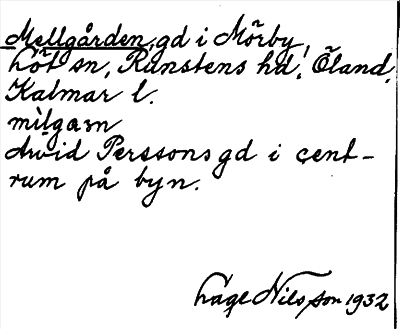 Mellgården, gd i Mörby,
Löt sn, Runstens hd, Öland,
Kalmar l.
mìlgaɜn
Arvid Perssons gd i cent-
rum på byn.
Lage Nilsson 1932